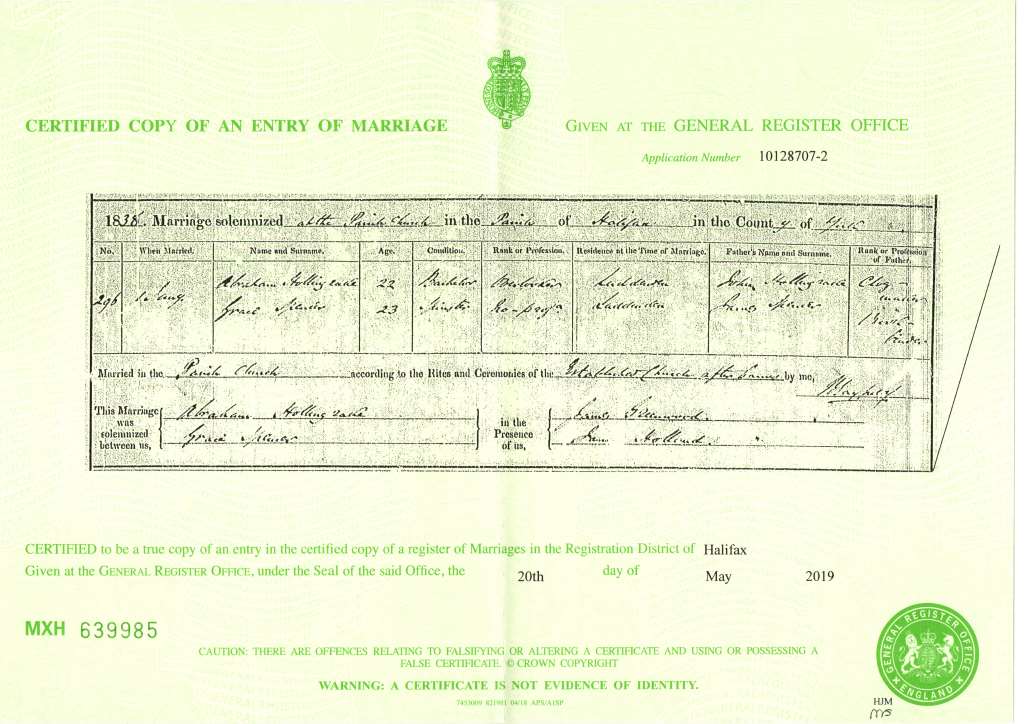 CERTIFIED COPY OF AN ENTRY OF MARRIAGE
GIVEN AT THE GENERAL REGISTER OFFICE
Application Number 10128707-2
1838. Marriage solemnized at the Parish Church in the Parish of Halifax in the County of York
No. When Married. Name and Surname. Age. Condition. Rank or Profession. Residence at the Time of Marriage. Father's Name and Surname. Rank or Profession of Father.
296 Aug. Abraham Hollingrake 22 Bachelor Luddenden John Hollingrake Clog-
Grace Spencer 23 Spinster Luddenden James Spencer
Married in the Parish Church according to the Rites and Ceremonies of the Established Church after by me,
This Marriage was solemnized between us,
Abraham Hollingrake
Grace Spencer
in the Presence of us,
James Greenwood.
Holland.
CERTIFIED to be a true copy of an entry in the certified copy of a register of Marriages in the Registration District of Halifax
Given at the GENERAL REGISTER OFFICE, under the Seal of the said Office, the 20th day of May 2019
MXH 639985
CAUTION: THERE ARE OFFENCES RELATING TO FALSIFYING OR ALTERING A CERTIFICATE AND USING OR POSSESSING A
FALSE CERTIFICATE. © CROWN COPYRIGHT
WARNING: A CERTIFICATE IS NOT EVIDENCE OF IDENTITY.
GENERAL REGISTER OFFICE
ENGLAND
HJM